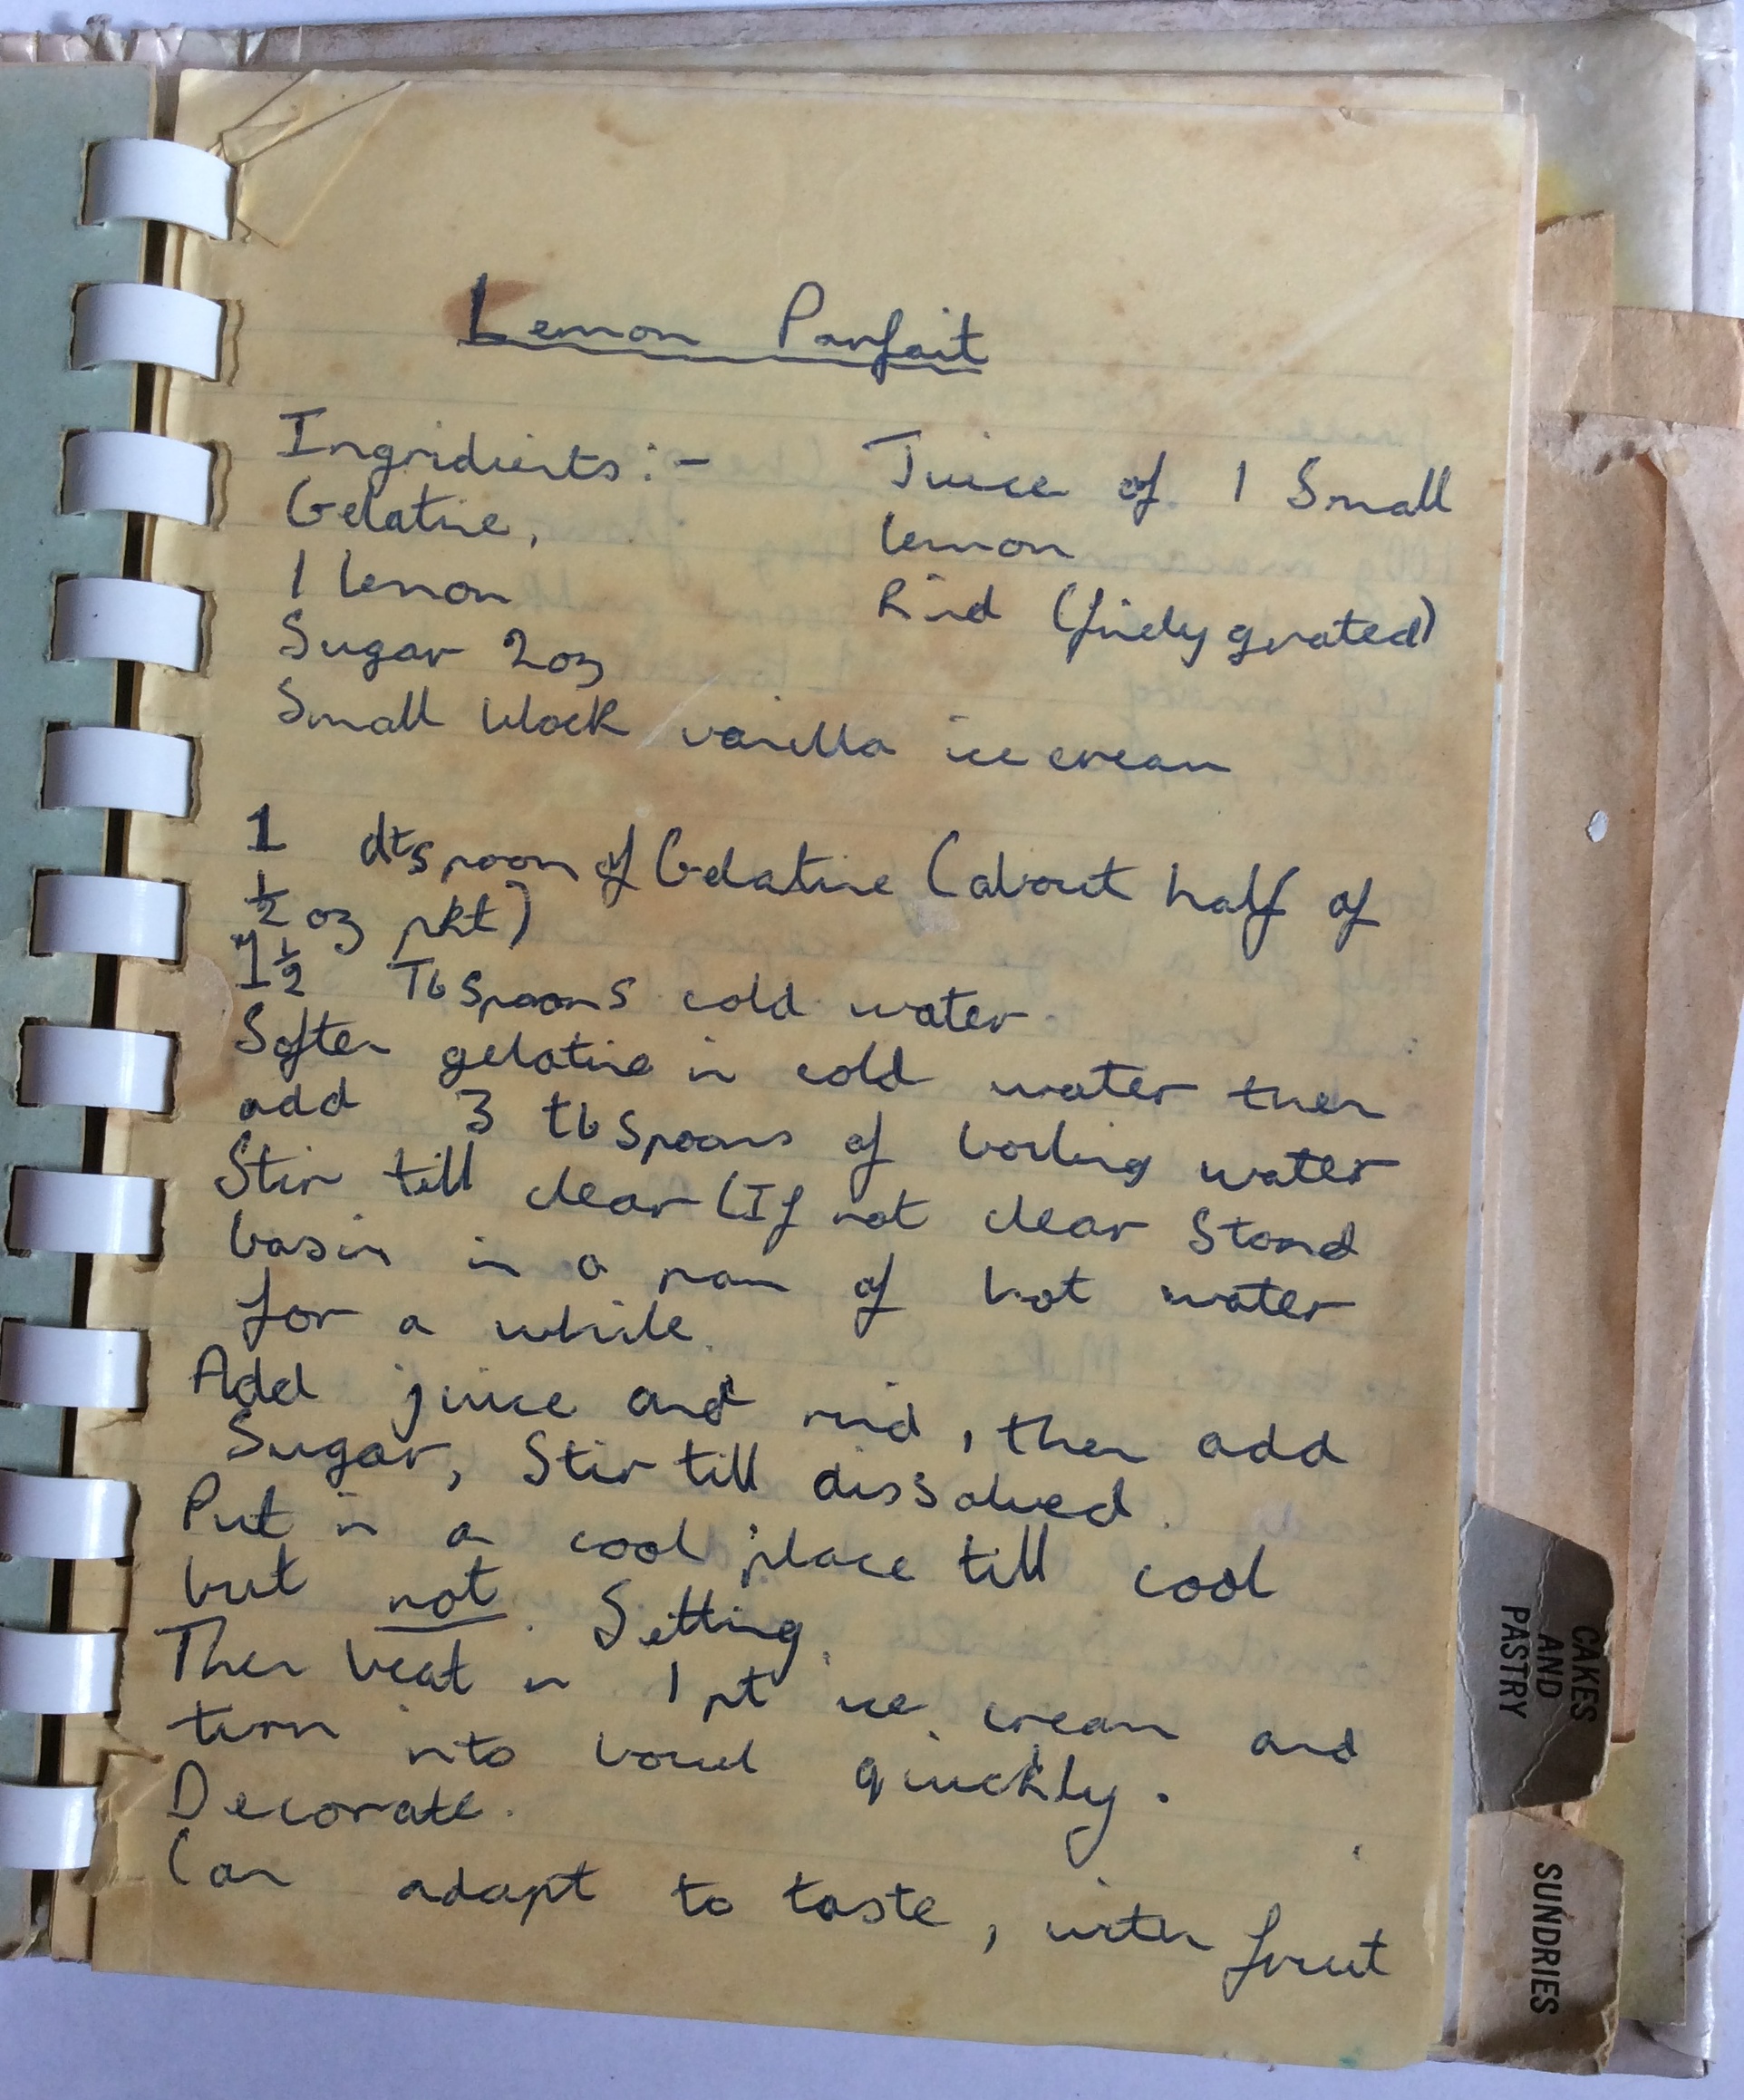 Lemon Parfait
Ingridients:-
Gelatine,
1 lemon
Sugar 2oz
Small block vanilla ice cream
Juice of 1 Small
lemon
Rind (finely grated)
1 dtspoon of Gelatine (about half of
½ oz pkt)
1½ Tbspoons cold water
Soften gelatine in cold water then
add 3 tbspoons of boiling water
Stir till clear (If not clear Stand
basin in a pan of hot water
for a while.
Add juice and rind, then add
Sugar, Stir till dissolved.
Put in a cool place till cool
but not Setting.
Then beat in 1 pt ice cream and
turn into bowl quickly.
Decorate.
Can adapt to taste, with fruit
CAKES
AND
PASTRY
SUNDRIES